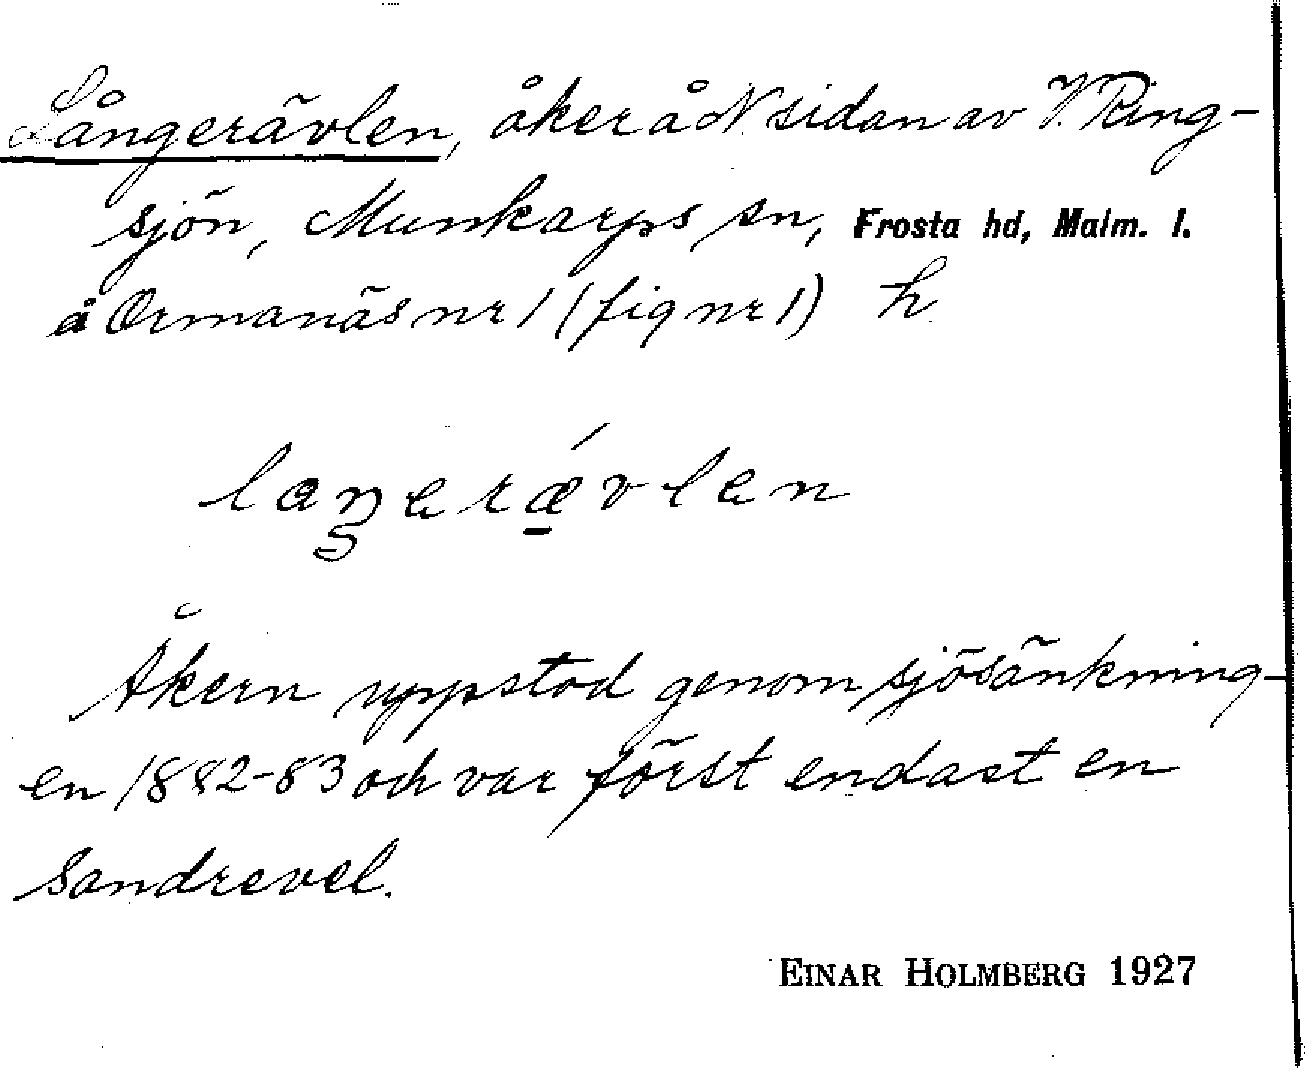 Långerävlen, åker å N sidan av V. Ring-
sjön, Munkarps sn, Frosta hd, Malm. l.
å Ormanäs nr 1 (fig nr 1) h
laŋerǽvlen
Åkern uppstod genom sjösänkning-
en 1882-83 och var först endast en
Sandrevel.
EINAR HOLMBERG 1927